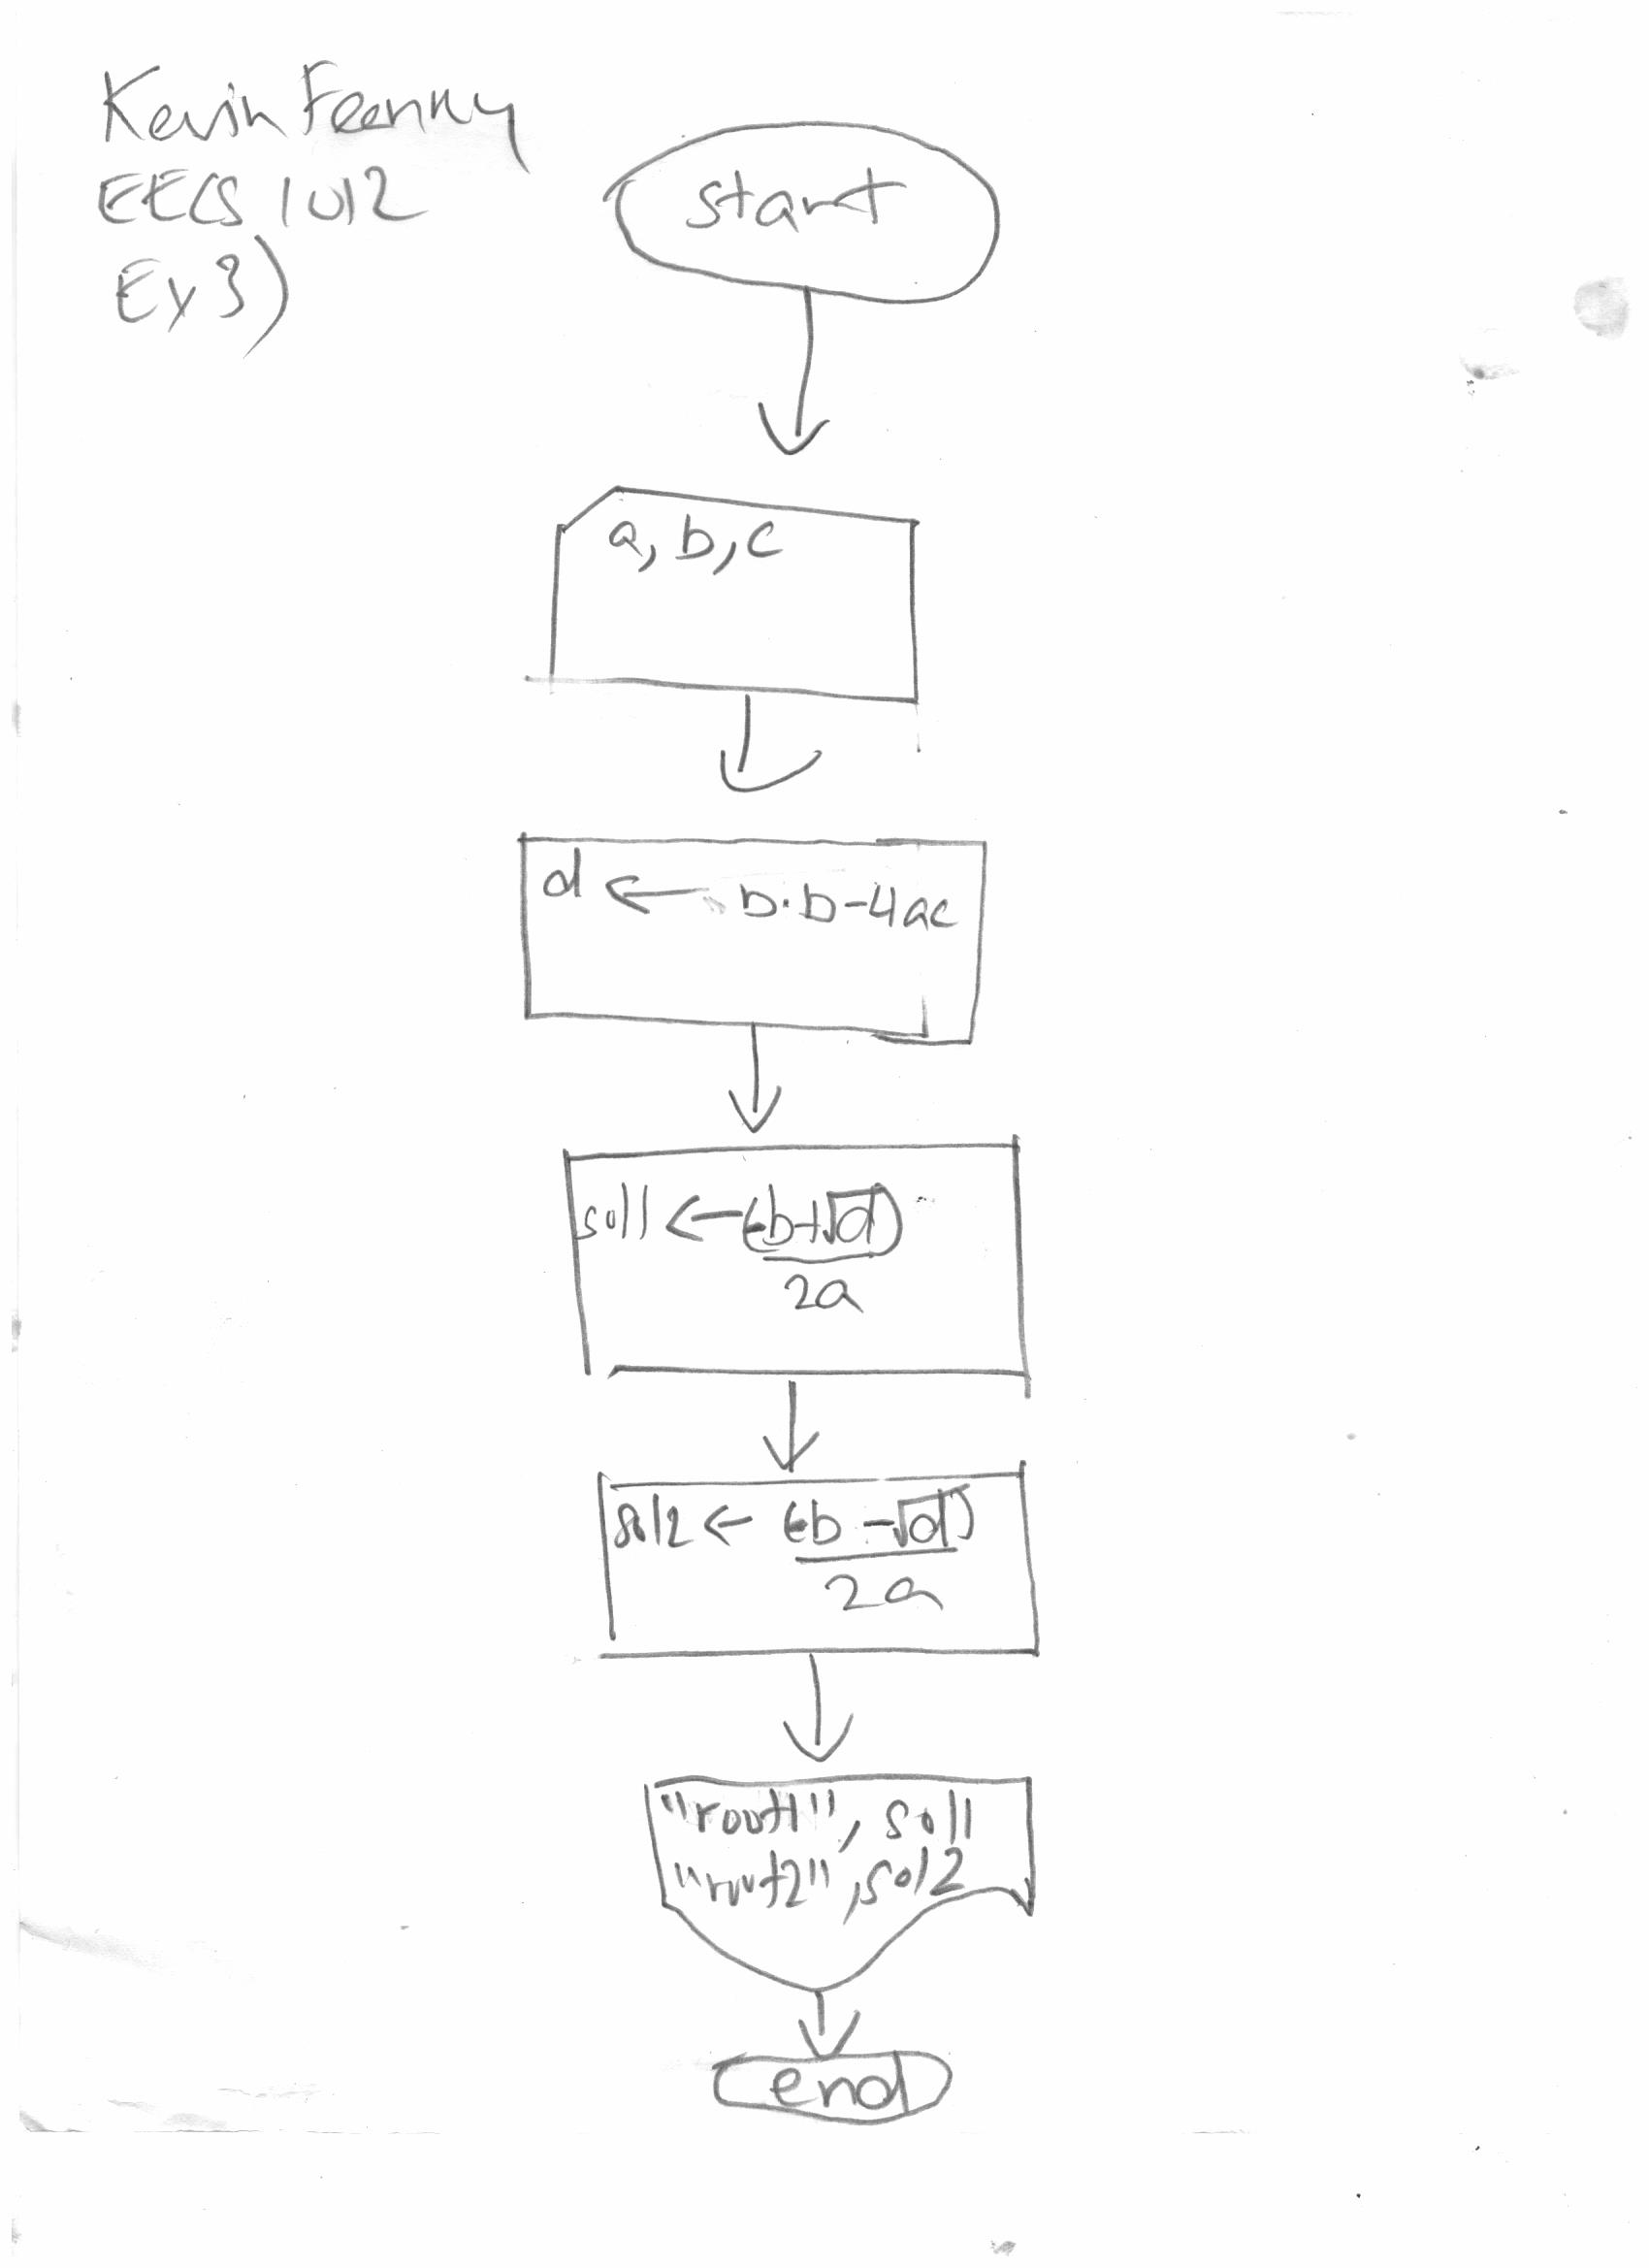 Kevin Feenny
EECS 1012
Ex 3)
start
a, b, c
d ← b·b-4ac
sol1 ← (-b+√d)
2a
sol2 ← (-b-√d)
2a
"root1", sol1
"root2", sol2
end